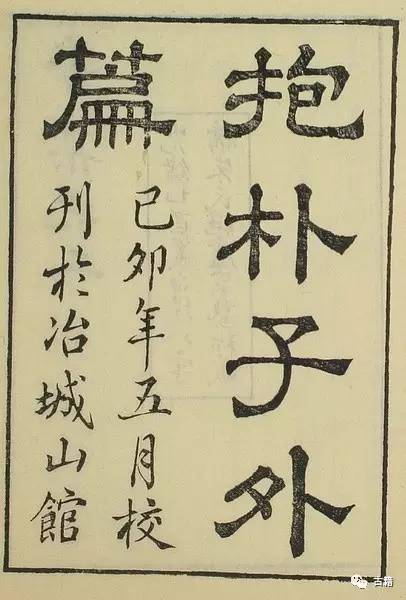 抱朴子外
篇
己卯年五月校
刊於冶城山館
古籍